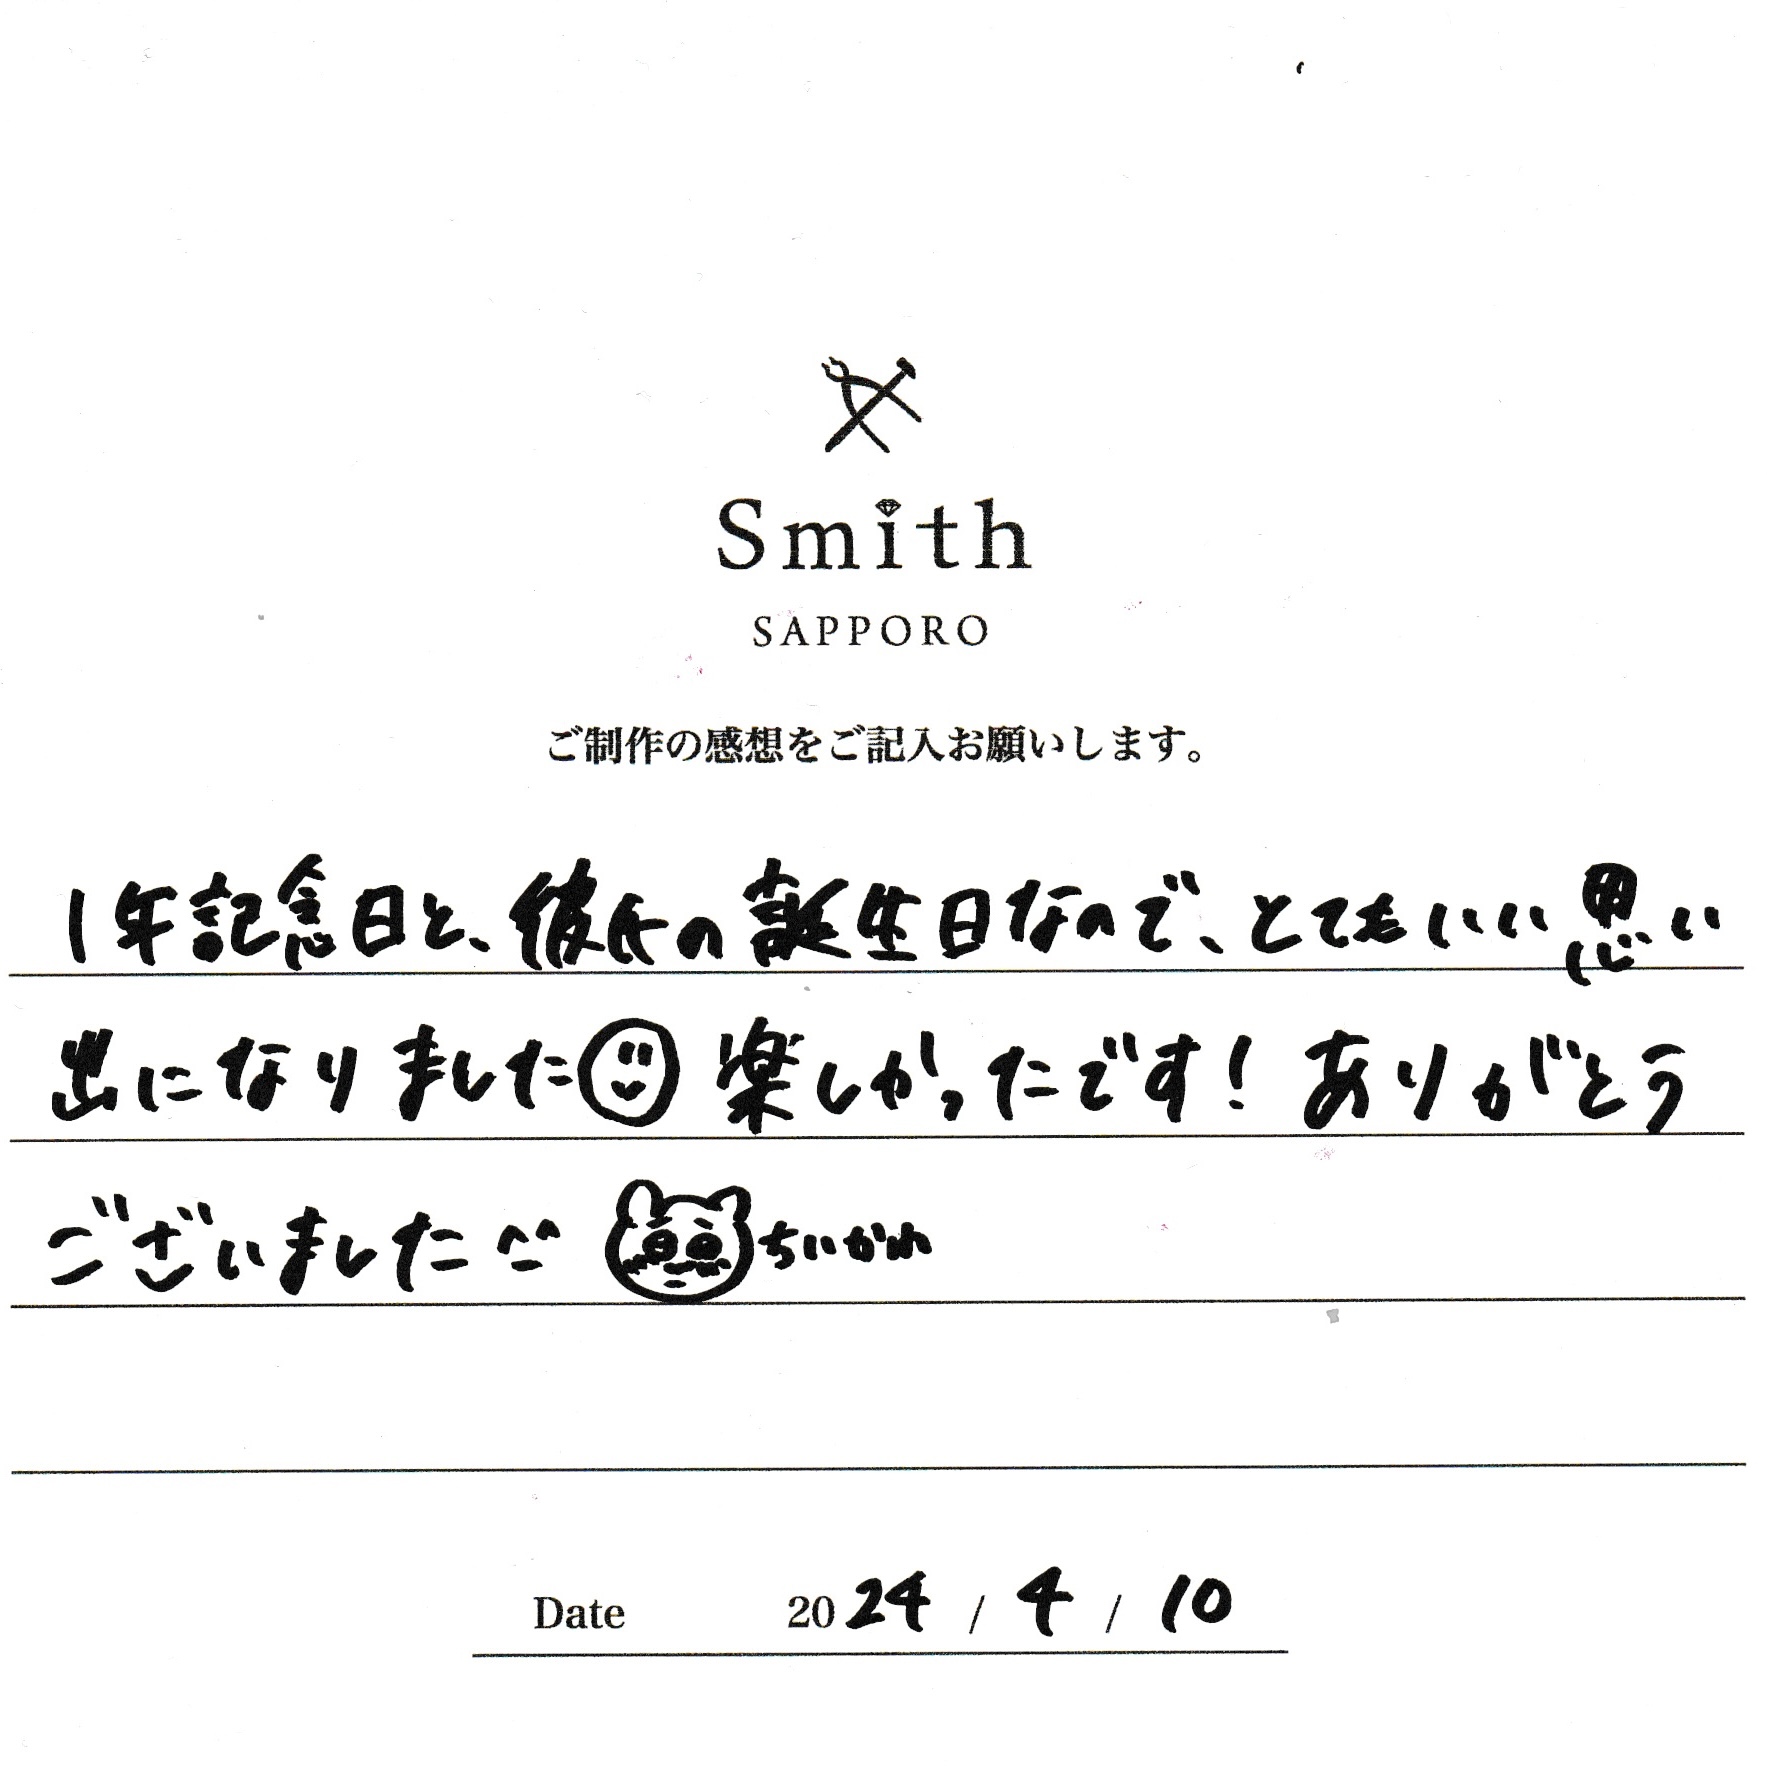 Smith
SAPPORO
ご制作の感想をご記入お願いします。
1年記念日と、彼氏の誕生日なので、とてもいい思い
出になりました 楽しかったです! ありがとう
ございました ちいかわ
Date 2024 / 4 / 10